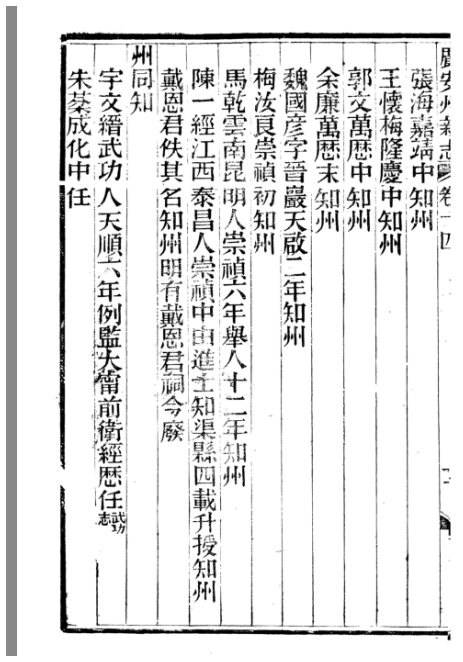 廣安州新志卷十四
張海嘉靖中知州
王懷梅隆慶中知州
郭文萬歷中知州
余廉萬歷末知州
魏國彥字晉巖天啟二年知州
梅汝良崇禎初知州
馬乾雲南昆明人崇禎六年舉人十二年知州
陳一經江西泰昌人崇禎中由進士知渠縣四載升授知州
戴恩君佚其名知州明有戴恩君祠今廢
州同知
宇文縉武功人天順六年例監大甯前衛經歷任武功志
朱棻成化中任